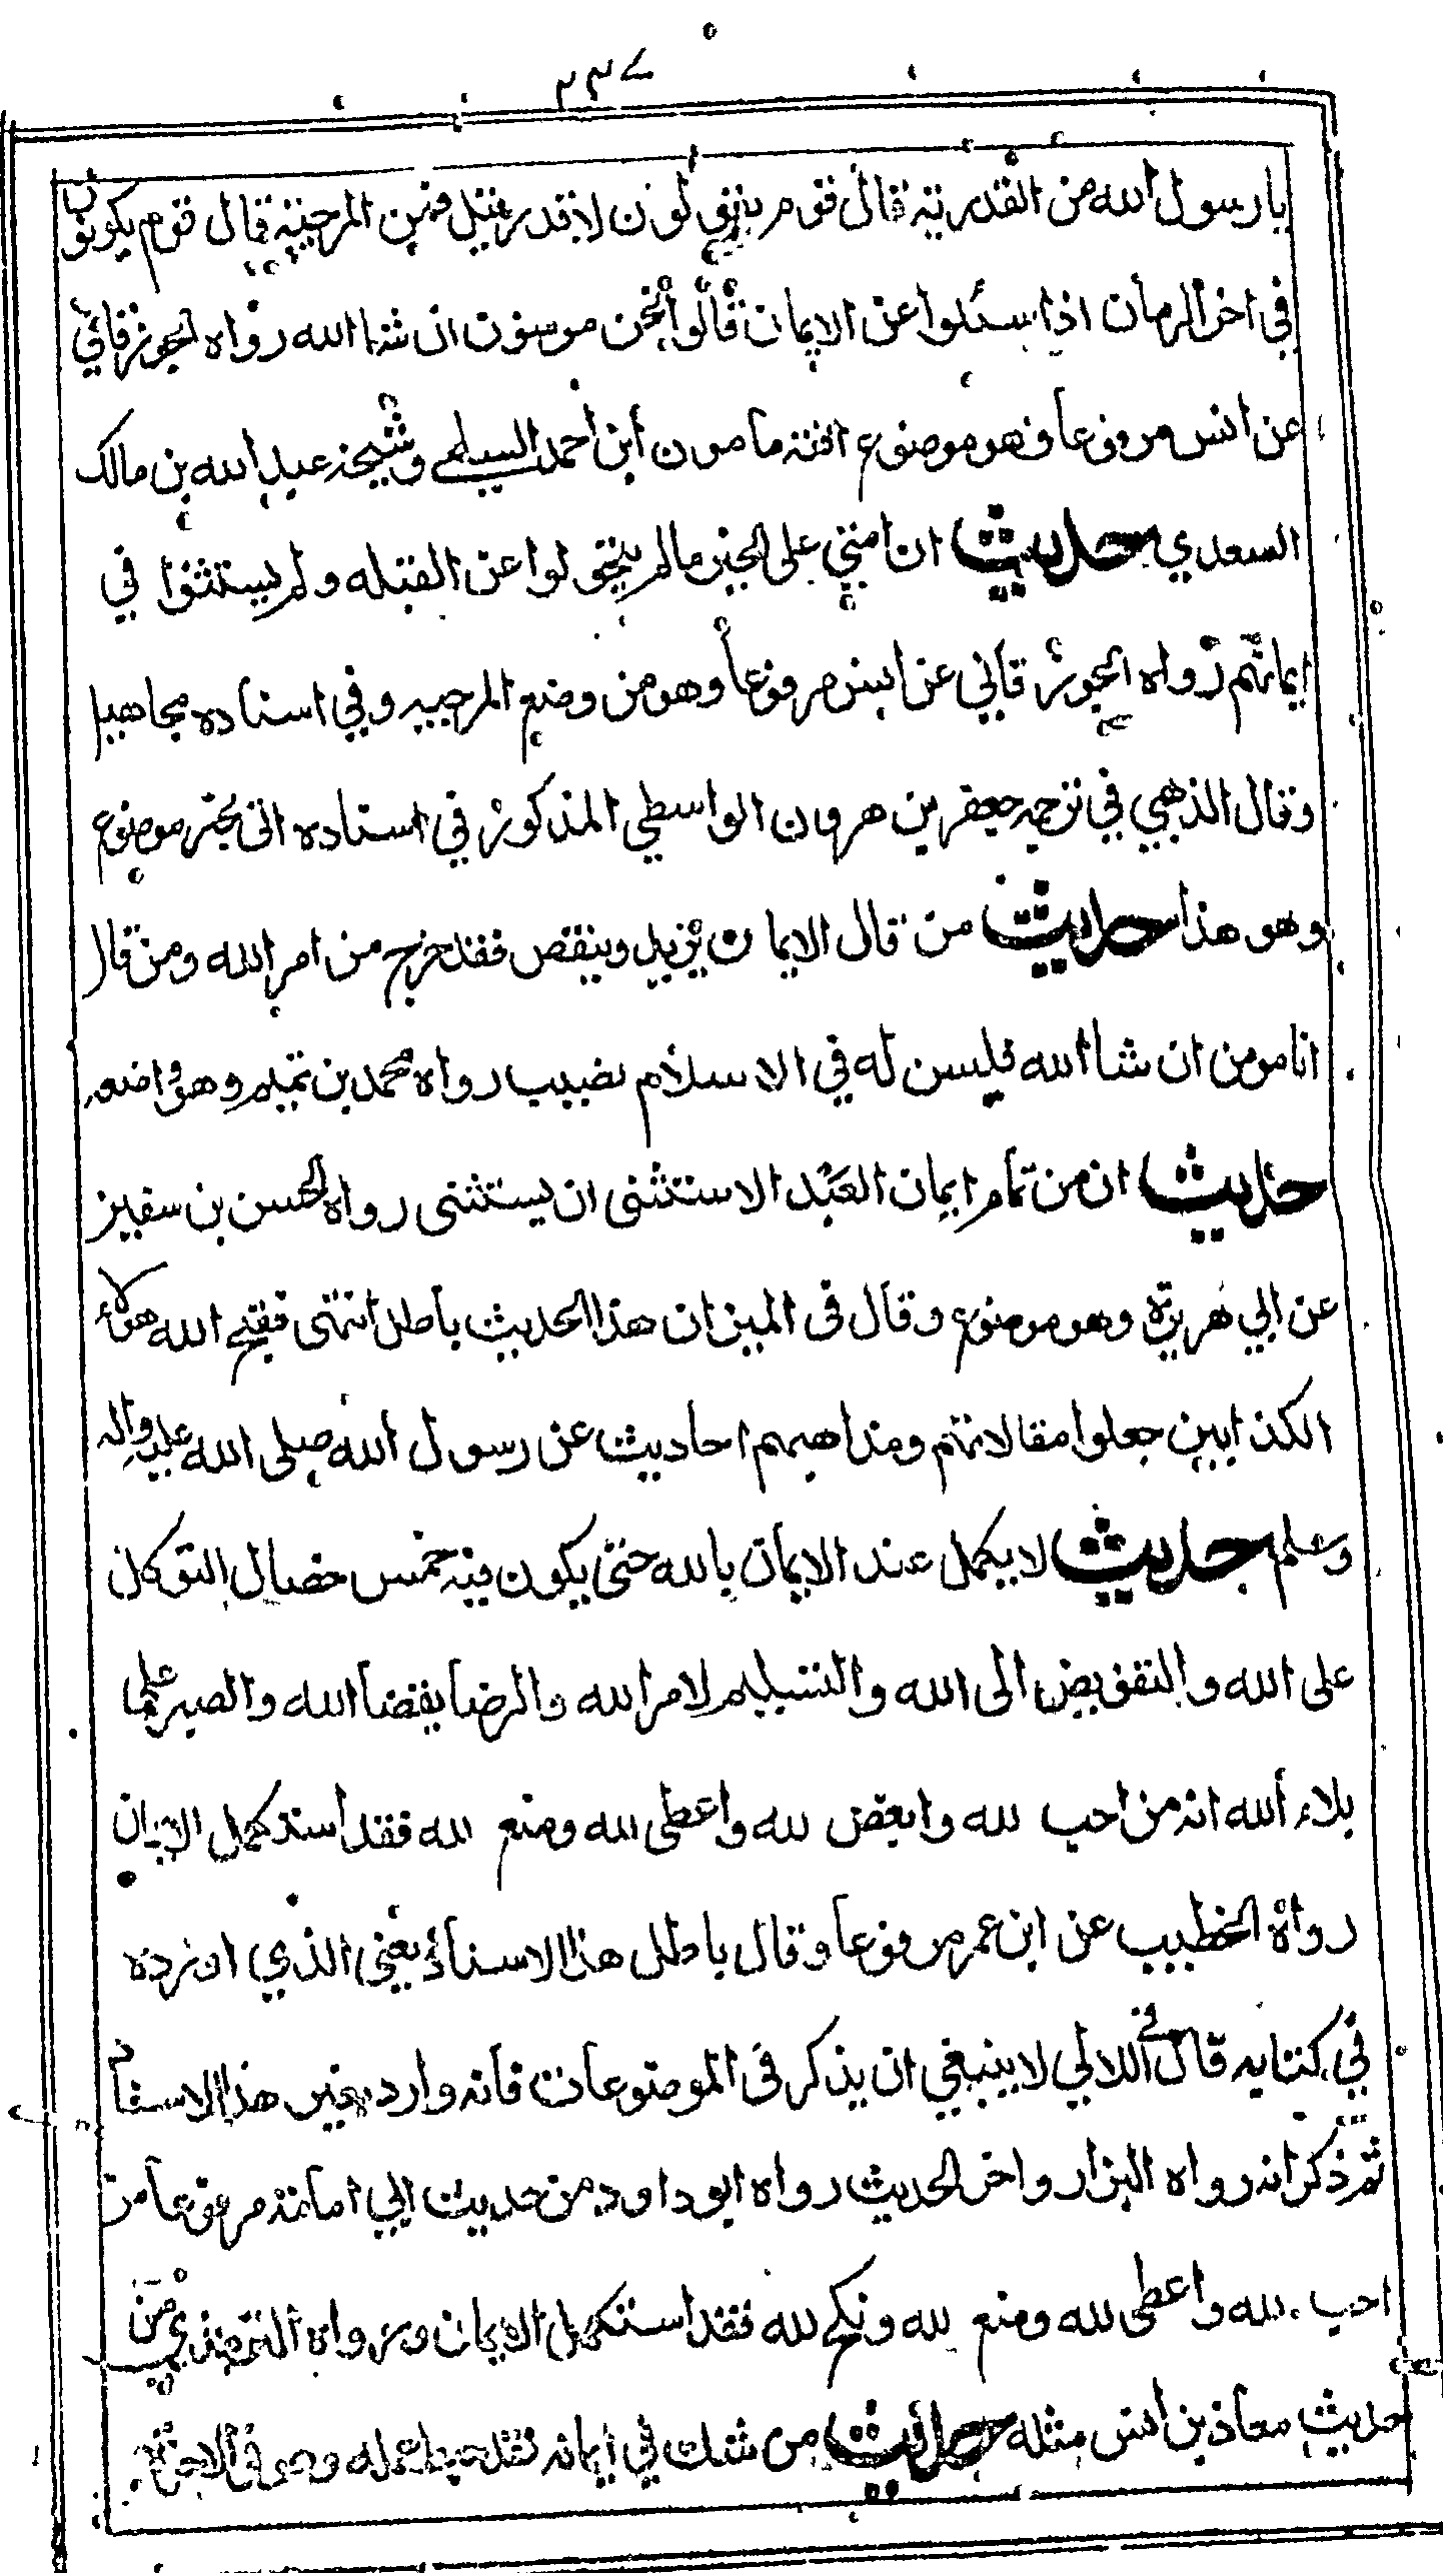 ٢٣٧
يا رسول الله من القدرية قال قوم يقولون لا قدر قيل فمن المرجية قال قوم يكونون
في اخر الزمان اذا سئلوا عن الايمان قالوا نحن مومنون ان شا الله رواه الجوزقاني
عن انس مرفوعا وهو موضوع افته مامون ابن احمد السلمي وشيخه عبد الله بن مالك
السعدي حديث ان امتي على الخير مالم يتحولوا عن القبله ولم يستثنوا في
ايمانهم رواه الجوزقاني عن انس مرفوعا وهو من وضع المرجيه وفي اسناده مجاهيل
وقال الذهبي في ترجمه جعفر بن هرون الواسطي المذكور في اسناده اتى بخبر موضوع
وهو هذا حديث من قال الايمان يزيد وينقص فقد خرج من امر الله ومن قال
انا مومن ان شا الله فليس له في الاسلام نصيب رواه محمد بن تميم وهو واضعه
حديث ان من تمام ايمان العبد الاستثنى ان يستثنى رواه الحسن بن سفين
عن ابي هريرة وهو موضوع وقال في الميزان هذا الحديث باطل انتهى فقبح الله هولاء
الكذابين جعلوا مقالاتهم ومذاهبهم احاديث عن رسول الله صلى الله عليه واله
وسلم حديث لا يكمل عند الايمان بالله حتى يكون فيه خمس خصال التوكل
على الله والتفويض الى الله والتسليم لامر الله والرضا بقضا الله والصبر على ما
بلاء الله انه من احب لله وابغض لله واعطى لله ومنع لله فقد استكمل الايمان
رواه الخطيب عن ابن عمر مرفوعا وقال باطل هذا الاسناد يعني الذي اورده
في كتابه قال في اللالي لا ينبغي ان يذكر في الموضوعات فانه وارد بغير هذا الاسناد
ثم ذكر انه رواه البزار واخر الحديث رواه ابو داود من حديث ابي امامة مرفوعا من
احب لله واعطى لله ومنع لله ونكح لله فقد استكمل الايمان ورواه الترمذي من
حديث معاذ بن انس مثله حديث من شك في ايمانه فقد حبط عمله وهو في الاخرة